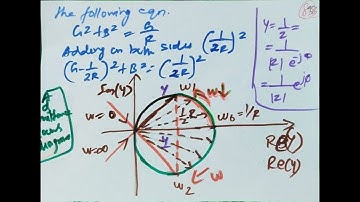 the following eqn.
G² + B² = G/R
Adding on both sides (1/2R)²
(G - 1/2R)² + B² = (1/2R)²
Y = 1/Z =
= 1/|Z| e^jθ
= 1/|Z| e^jθ
Im(Y)
w₁
w↓
Y
1/2R
w = 0
w₀ = 1/R
w = ∞
Y
w₂
w
Re(Y)
Re(Y)